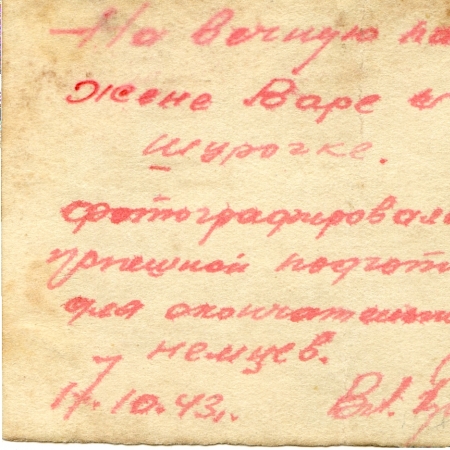 На вечную па
жене Варе и
Шурочке.
фотографировал
успешной подготов
для окончательно
немцев.
17.10.43г.
Вл.